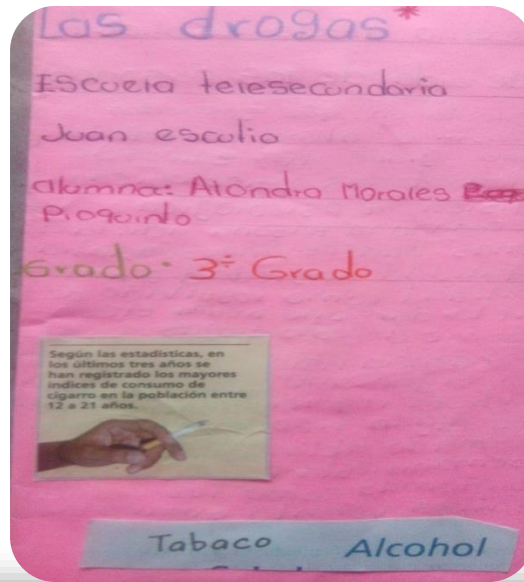 Las drogas*
Escuela telesecundaria
Juan escutia
alumna: Alondra Morales
Pioquinto
Grado: 3º Grado
Según las estadísticas, en
los últimos tres años se
han registrado los mayores
índices de consumo de
cigarro en la población entre
12 a 21 años.
Tabaco Alcohol